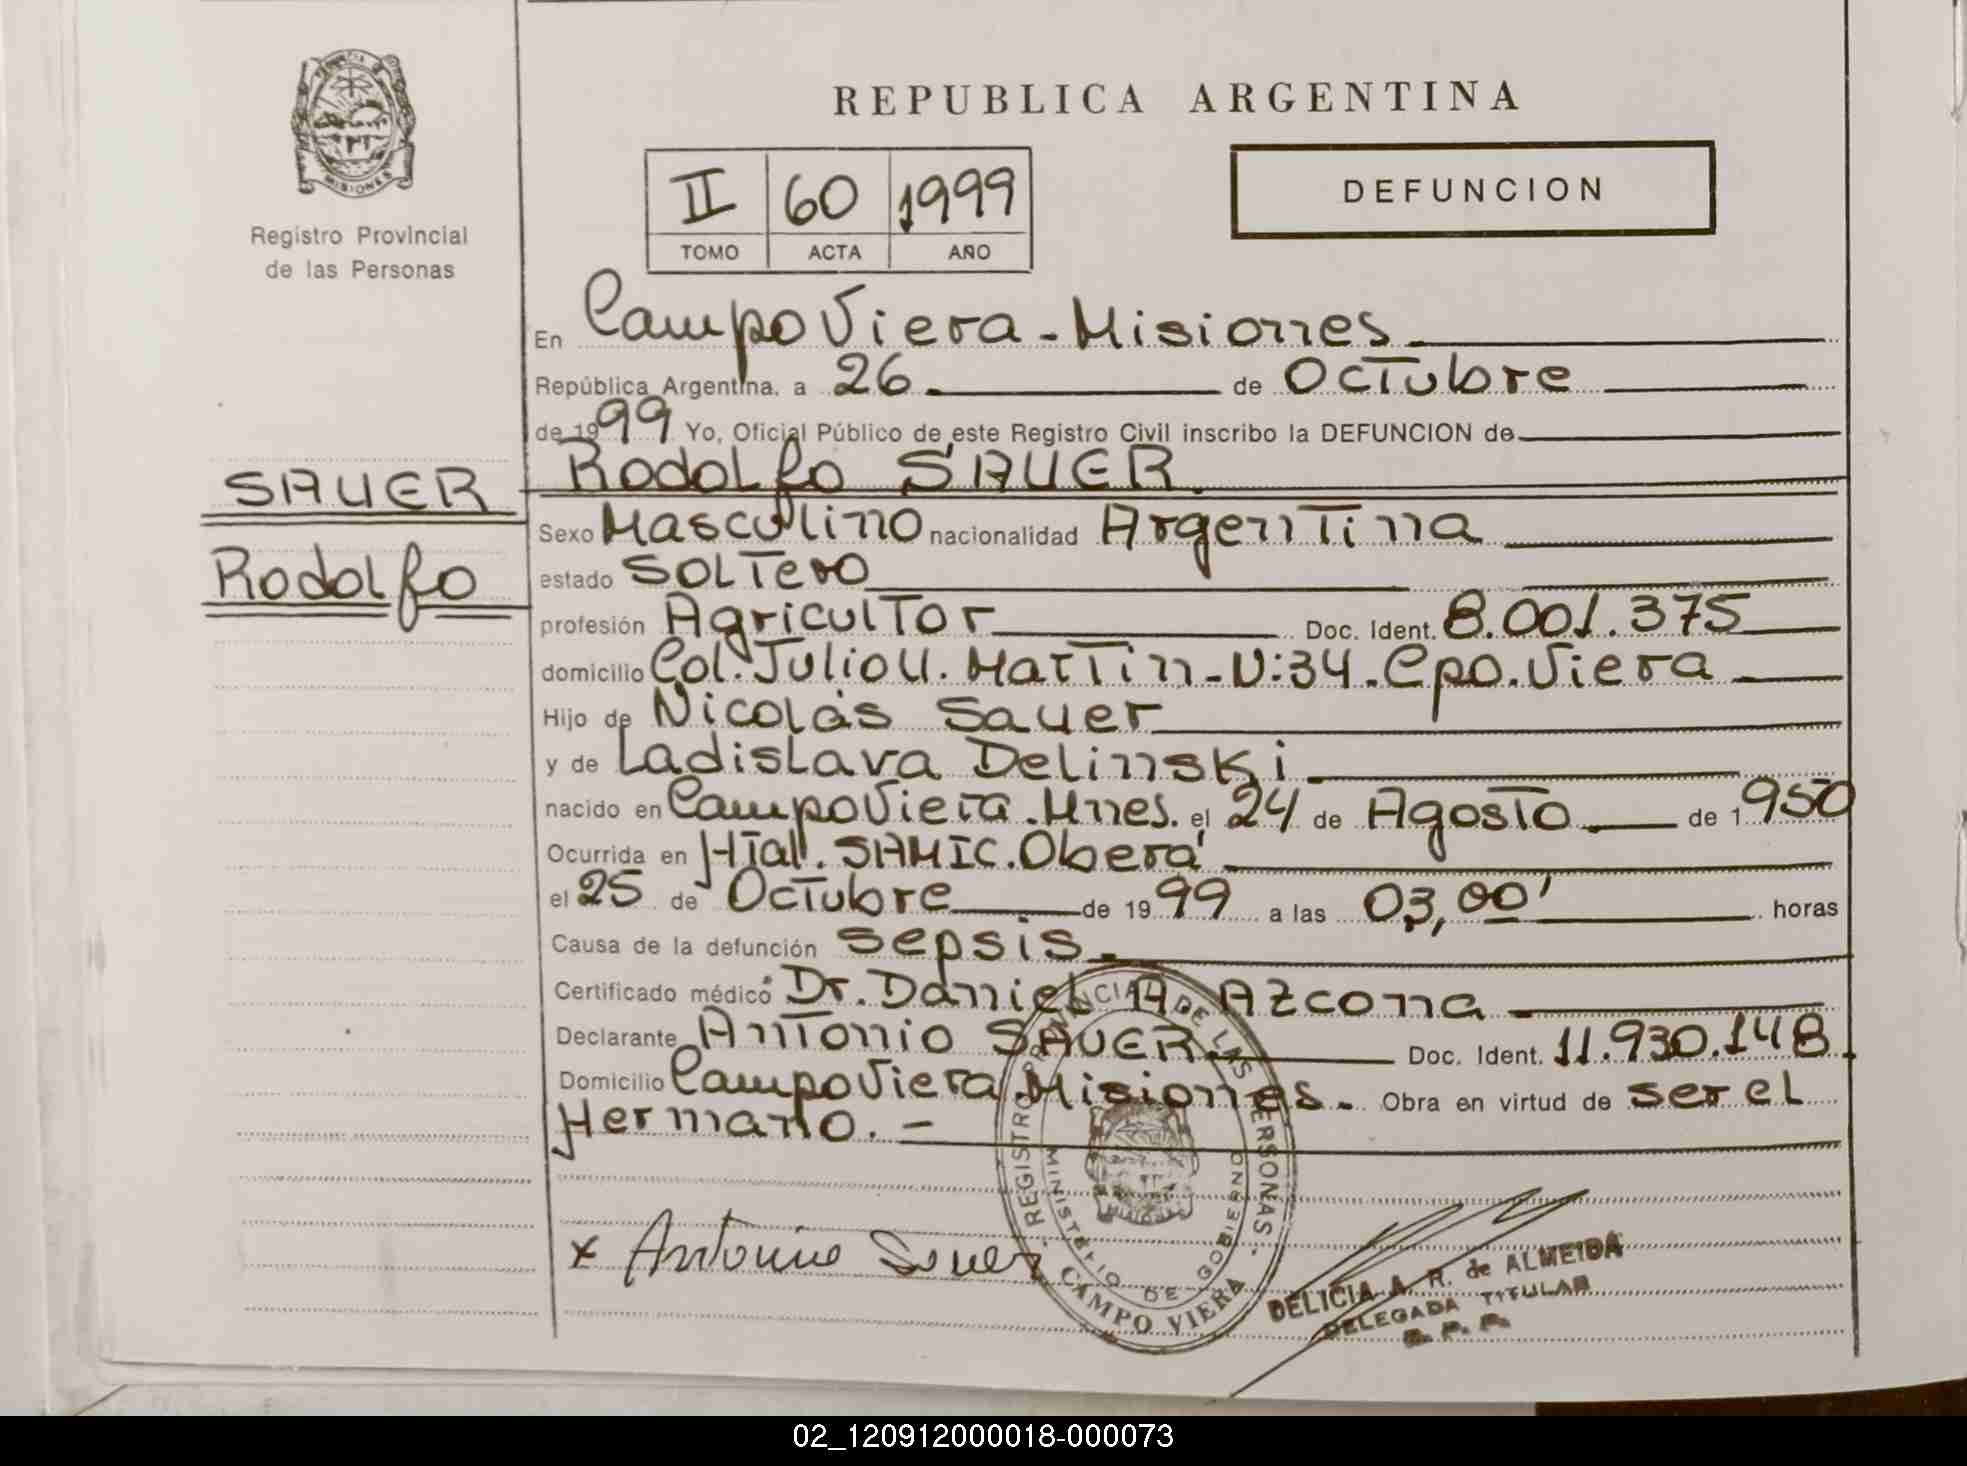 MISIONES
Registro Provincial
de las Personas
SAUER
Rodolfo
REPUBLICA ARGENTINA
II 60 1999
TOMO ACTA AÑO
DEFUNCION
En Campo Viera - Misiones
República Argentina, a 26 de Octubre
de 1999 Yo, Oficial Público de este Registro Civil inscribo la DEFUNCION de
Rodolfo SAUER
Sexo Masculino nacionalidad Argentina
estado Soltero
profesión Agricultor Doc. Ident. 8.001.375
domicilio Col. Julio U. Martin - N:34. Cpo. Viera
Hijo de Nicolás Sauer
y de Ladislava Delinski
nacido en Campo Viera. Mnes. el 24 de Agosto de 1950
Ocurrida en Htal. SAMIC. Oberá
el 25 de Octubre de 1999 a las 03,00' horas
Causa de la defunción sepsis.
Certificado médico Dr. Daniel H Azcona
Declarante Antonio SAUER Doc. Ident. 11.930.148
Domicilio Campo Viera. Misiones. Obra en virtud de ser el
Hermano. -
x Antonio Sauer
REGISTRO PROVINCIAL DE LAS PERSONAS
MINISTERIO DE GOBIERNO
CAMPO VIERA
DELICIA A. R. de ALMEIDA
DELEGADA TITULAR
02_120912000018-000073